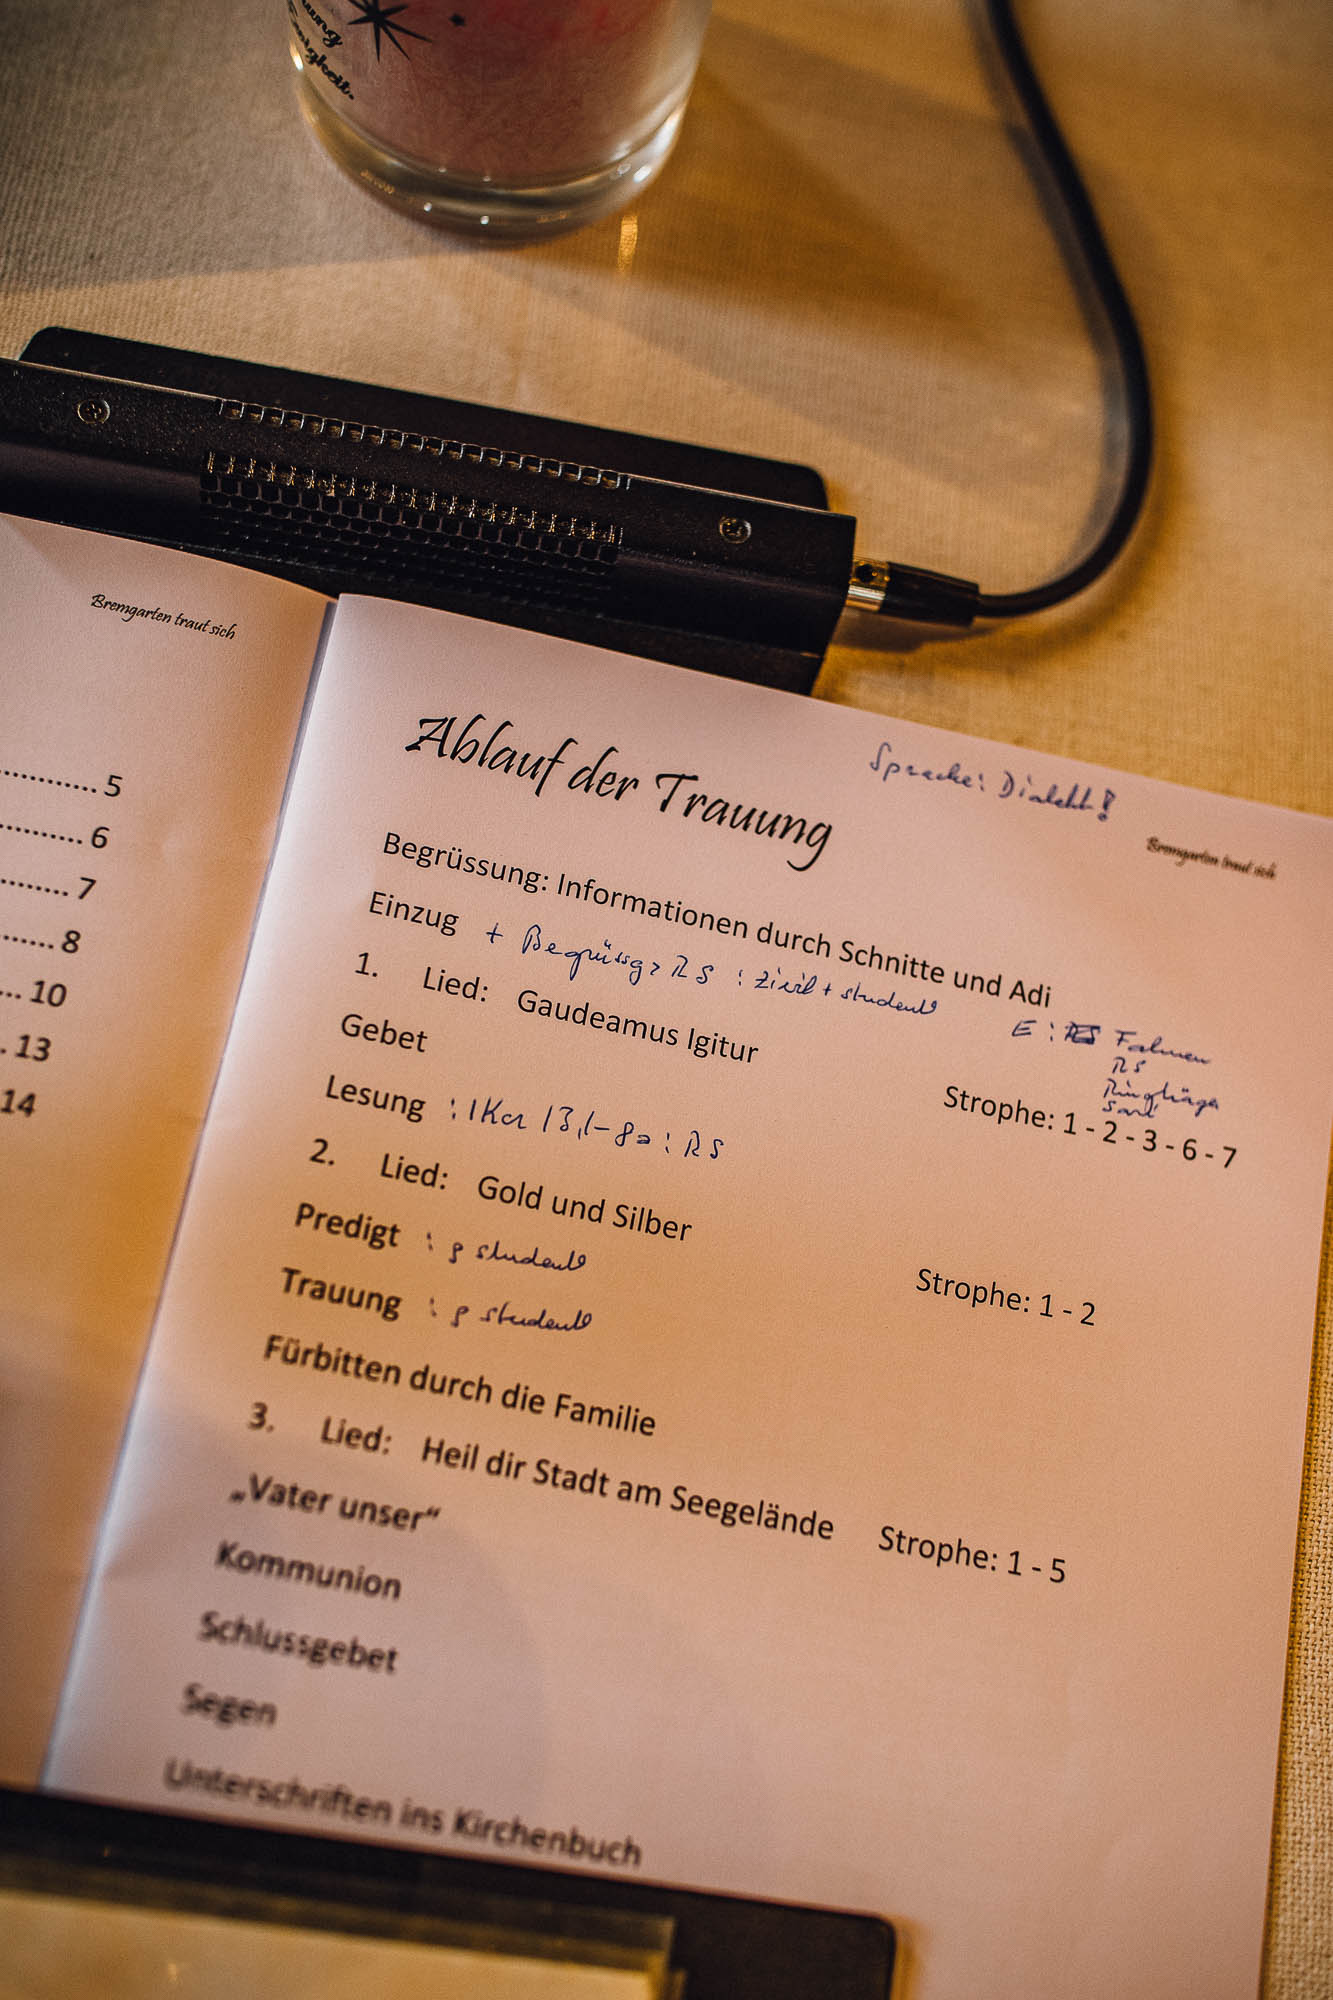 Bremgarten traut sich
5
6
7
8
10
13
14
Ablauf der Trauung
Sprache: Dialekt!
Bremgarten traut sich
Begrüssung: Informationen durch Schnitte und Adi
Einzug + Begrüssg> RS : zivil +
1. Lied: Gaudeamus Igitur
E : Fahnen
RS
Ringträger
Strophe: 1 - 2 - 3 - 6 - 7
Gebet
Lesung : 1 Kor 13,1-8a : RS
2. Lied: Gold und Silber
Strophe: 1 - 2
Predigt :
Trauung :
Fürbitten durch die Familie
3. Lied: Heil dir Stadt am Seegelände Strophe: 1 - 5
„Vater unser“
Kommunion
Schlussgebet
Segen
Unterschriften ins Kirchenbuch